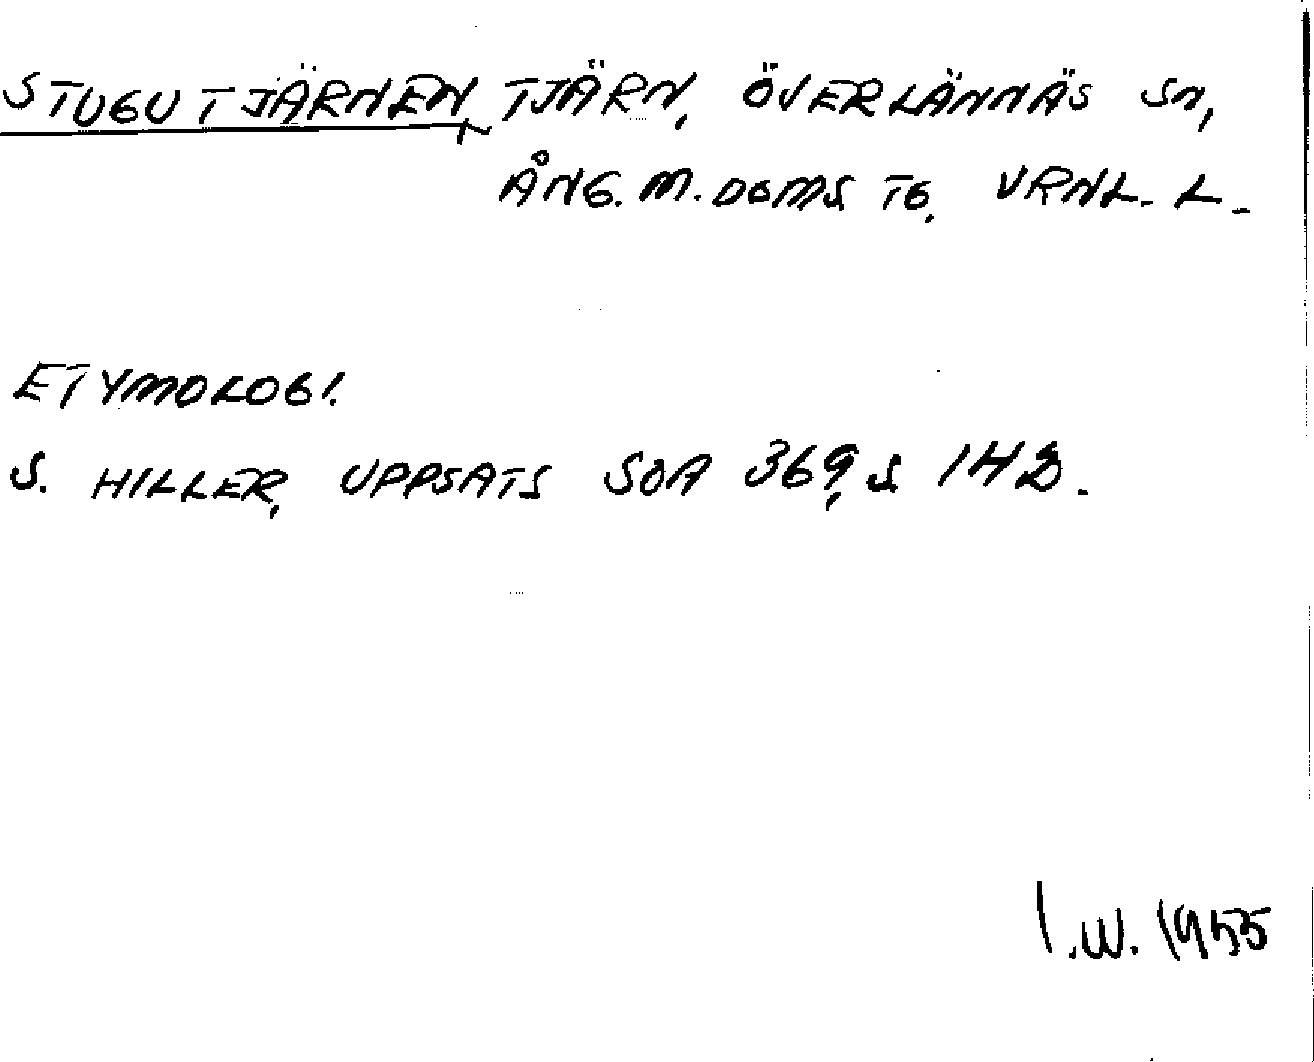 STUGUTJÄRNEN, TJÄRN, ÖVERLÄNNÄS SN,
ÅNG. M. DOMS TG, VRNL. L.
ETYMOLOGI.
S. HILLER, UPPSATS SOA 369, S 142.
I.W. 1955